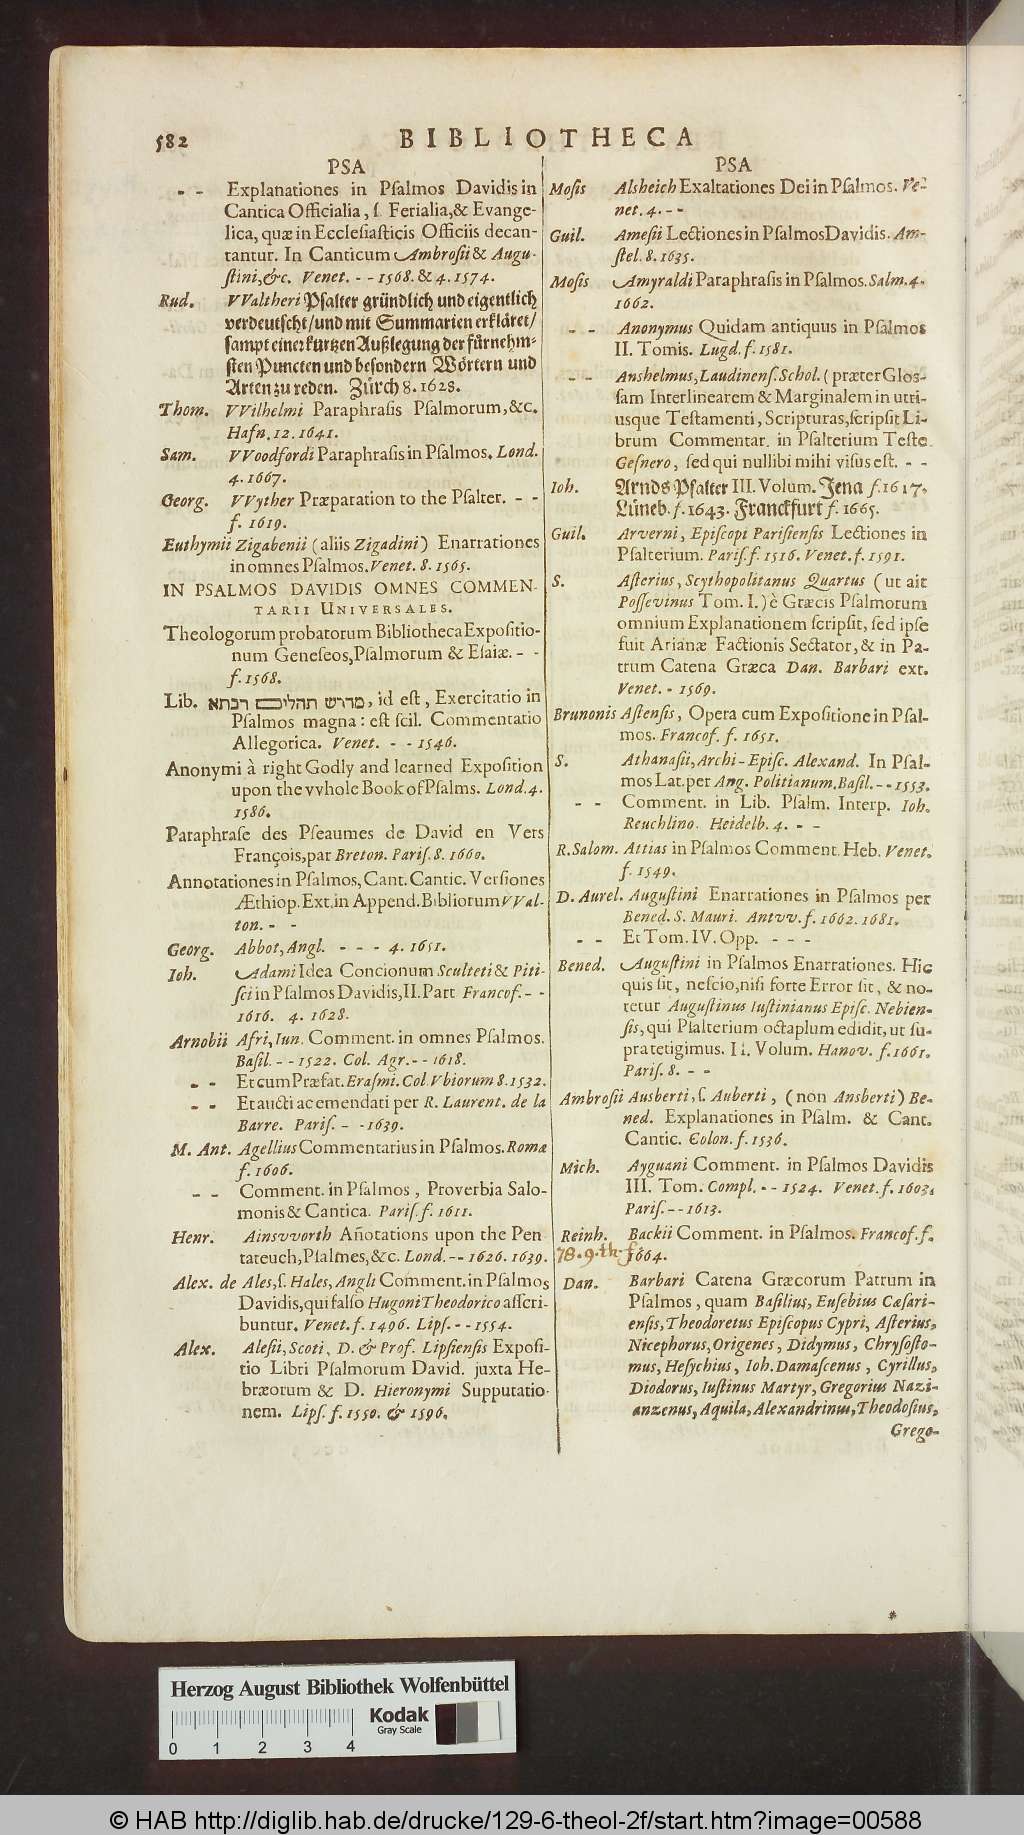 582 BIBLIOTHECA
PSA
- - Explanationes in Pſalmos Davidis in
Cantica Officialia, ſ. Ferialia, & Evange-
lica, quæ in Eccleſiaſticis Officiis decan-
tantur. In Canticum Ambroſii & Augu-
ſtini, &c. Venet. - - 1568. & 4. 1574.
Rud. VValtheri Pſalter gründlich und eigentlich
verdeutſcht/ und mit Summarien erkläret/
ſampt einer kurtzen Außlegung der fürnehm-
ſten Puncten und beſondern Wörtern und
Arten zu reden. Zürch 8. 1628.
Thom. VVilhelmi Paraphraſis Pſalmorum, &c.
Hafn. 12. 1641.
Sam. VVoodfordi Paraphraſis in Pſalmos. Lond.
4. 1667.
Georg. VVyther Præparation to the Pſalter. - -
f. 1619.
Euthymii Zigabenii (aliis Zigadini) Enarrationes
in omnes Pſalmos. Venet. 8. 1565.
IN PSALMOS DAVIDIS OMNES COMMEN-
TARII UNIVERSALES.
Theologorum probatorum Bibliotheca Expoſitio-
num Geneſeos, Pſalmorum & Eſaiæ. - -
f. 1568.
Lib. מדרש תהלים רבתא, id eſt, Exercitatio in
Pſalmos magna: eſt ſcil. Commentatio
Allegorica. Venet. - - 1546.
Anonymi à right Godly and learned Expoſition
upon the vvhole Book of Pſalms. Lond. 4.
1586.
Paraphraſe des Pſeaumes de David en Vers
François, par Breton. Pariſ. 8. 1660.
Annotationes in Pſalmos, Cant. Cantic. Verſiones
Æthiop. Ext. in Append. Bibliorum VVal-
ton. - -
Georg. Abbot, Angl. - - - 4. 1651.
Ioh. Adami Idea Concionum Sculteti & Piti-
ſci in Pſalmos Davidis, II. Part Francof. - -
1616. 4. 1628.
Arnobii Afri, Iun. Comment. in omnes Pſalmos.
Baſil. - - 1522. Col. Agr. - - 1618.
- - Et cum Præfat. Eraſmi. Col. Vbiorum 8. 1532.
- - Et aucti ac emendati per R. Laurent. de la
Barre. Pariſ. - - 1639.
M. Ant. Agellius Commentarius in Pſalmos. Romæ
f. 1606.
- - Comment. in Pſalmos, Proverbia Salo-
monis & Cantica. Pariſ. f. 1611.
Henr. Ainsvvorth Añotations upon the Pen
tateuch, Pſalmes, &c. Lond. - - 1626. 1639.
Alex. de Ales, ſ. Hales, Angli Comment. in Pſalmos
Davidis, qui falſo Hugoni Theodorico aſſcri-
buntur. Venet. f. 1496. Lipſ. - - 1554.
Alex. Aleſii, Scoti, D. & Prof. Lipſienſis Expoſi-
tio Libri Pſalmorum David. juxta He-
bræorum & D. Hieronymi Supputatio-
nem. Lipſ. f. 1550. & 1596.
PSA
Moſis Alsheich Exaltationes Dei in Pſalmos. Ve-
net. 4. - -
Guil. Ameſii Lectiones in Pſalmos Davidis. Am-
ſtel. 8. 1635.
Moſis Amyraldi Paraphraſis in Pſalmos. Salm. 4.
1662.
- - Anonymus Quidam antiquus in Pſalmos
II. Tomis. Lugd. f. 1581.
- - Anshelmus, Laudinenſ. Schol. (præter Gloſ-
ſam Interlinearem & Marginalem in utri-
usque Teſtamenti, Scripturas, ſcripſit Li-
brum Commentar. in Pſalterium Teſte
Geſnero, ſed qui nullibi mihi viſus eſt. - -
Ioh. Arnds Pſalter III. Volum. Jena f. 1617.
Lüneb. f. 1643. Franckfurt f. 1665.
Guil. Arverni, Epiſcopi Pariſienſis Lectiones in
Pſalterium. Pariſ. f. 1516. Venet. f. 1591.
S. Aſterius, Scythopolitanus Quartus (ut ait
Poſſevinus Tom. I.) è Græcis Pſalmorum
omnium Explanationem ſcripſit, ſed ipſe
fuit Arianæ Factionis Sectator, & in Pa-
trum Catena Græca Dan. Barbari ext.
Venet. - 1569.
Brunonis Aſtenſis, Opera cum Expoſitione in Pſal-
mos. Francof. f. 1651.
S. Athanaſii, Archi-Epiſc. Alexand. In Pſal-
mos Lat. per Ang. Politianum. Baſil. - - 1553.
- - Comment. in Lib. Pſalm. Interp. Ioh.
Reuchlino. Heidelb. 4. - -
R. Salom. Attias in Pſalmos Comment. Heb. Venet.
f. 1549.
D. Aurel. Auguſtini Enarrationes in Pſalmos per
Bened. S. Mauri. Antvv. f. 1662. 1681.
- - Et Tom. IV. Opp. - - -
Bened. Auguſtini in Pſalmos Enarrationes. Hic
quis ſit, neſcio, niſi forte Error ſit, & no-
tetur Auguſtinus Iuſtinianus Epiſc. Nebien-
ſis, qui Pſalterium octaplum edidit, ut ſu-
pra tetigimus. II. Volum. Hanov. f. 1661.
Pariſ. 8. - -
Ambroſii Ausberti, ſ. Auberti, (non Ansberti) Be-
ned. Explanationes in Pſalm. & Cant.
Cantic. Colon. f. 1536.
Mich. Ayguani Comment. in Pſalmos Davidis
III. Tom. Compl. - - 1524. Venet. f. 1603.
Pariſ. - - 1613.
Reinh. Backii Comment. in Pſalmos. Francof. f.
78. 9. th. f. 1664.
Dan. Barbari Catena Græcorum Patrum in
Pſalmos, quam Baſilius, Euſebius Cæſari-
enſis, Theodoretus Epiſcopus Cypri, Aſterius,
Nicephorus, Origenes, Didymus, Chryſoſto-
mus, Heſychius, Ioh. Damaſcenus, Cyrillus,
Diodorus, Iuſtinus Martyr, Gregorius Nazi-
anzenus, Aquila, Alexandrinus, Theodoſius,
Grego-
Herzog August Bibliothek Wolfenbüttel
Kodak
Gray Scale
0 1 2 3 4
© HAB http://diglib.hab.de/drucke/129-6-theol-2f/start.htm?image=00588